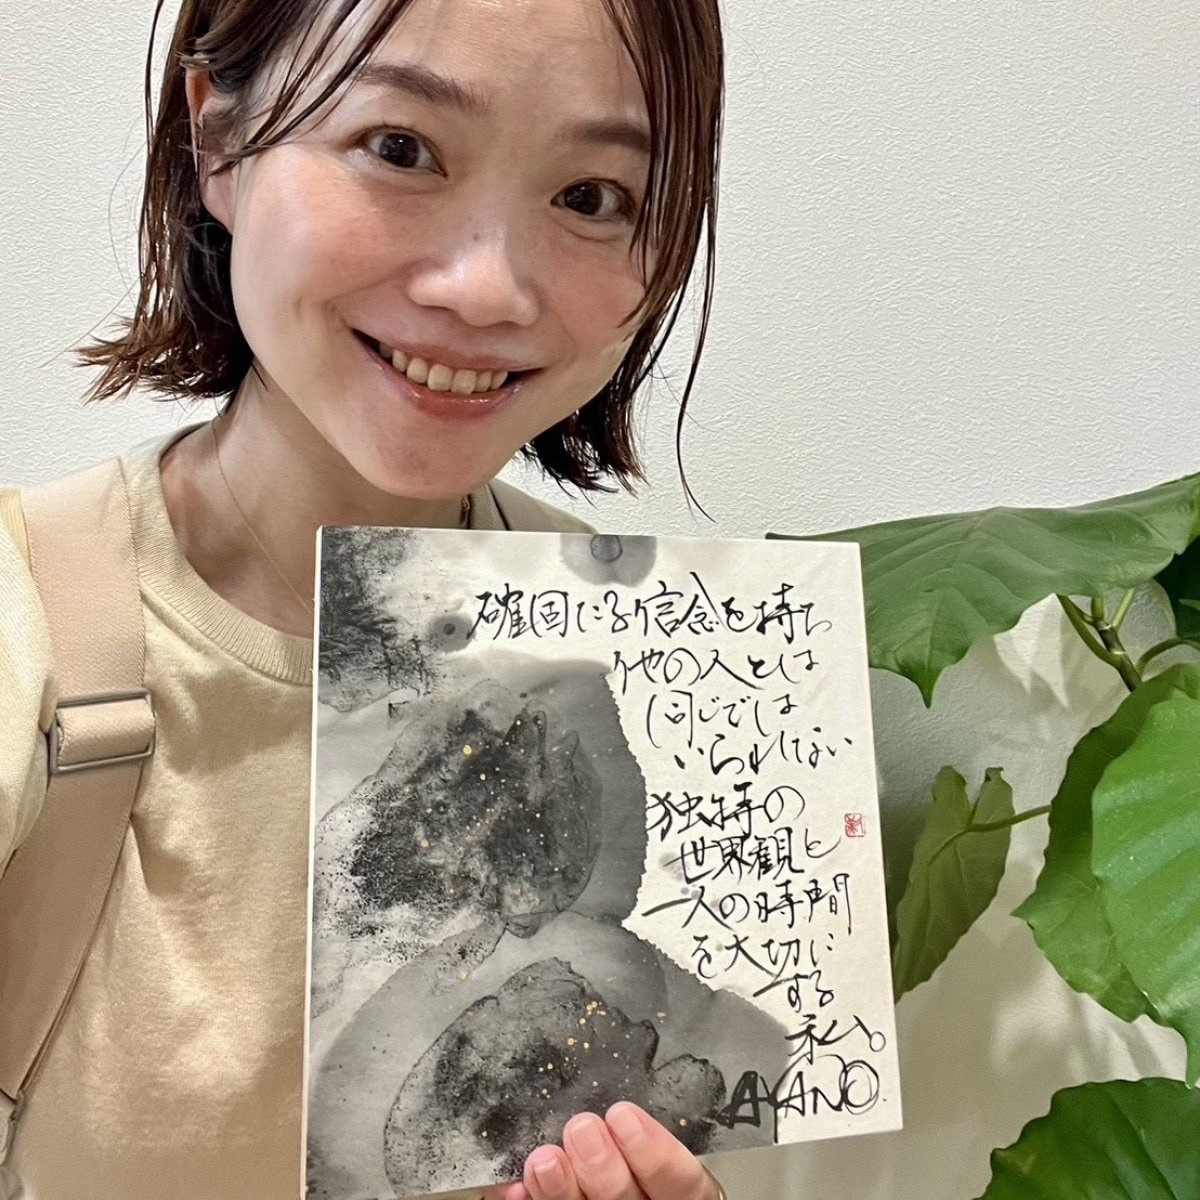 確固たる信念を持ち
他の人とは
同じでは
いられない
独特の
世界観と
一人の時間
を大切に
する
私。
AYANO